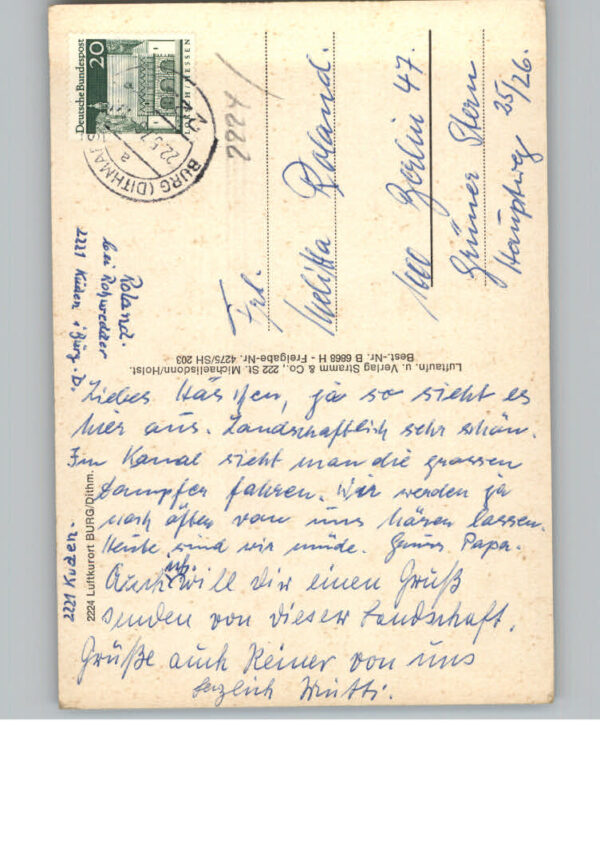 Deutsche Bundespost
20
LORSCH/HESSEN
BURG (DITHM
22.5.7
a
2224
Roland.
bei Rohwedder
2221 Kuden
Frl.
Melitta Roland.
1000 Berlin 47.
Grüner Stern
Hauptweg 25/26.
Luftaufn. u. Verlag Stramm & Co., 222 St. Michaelisdonn/Holst.
Best.-Nr. B 6868 H - Freigabe-Nr. 4275/SH 203
2224 Luftkurort BURG/Dithm.
2221 Kuden.
Liebes Häschen, ja so sieht es
hier aus. Landschaftlich sehr schön.
Im Kanal sieht man die grossen
Dampfer fahren. Wir werden ja
noch öfter von uns hören lassen.
Heute sind wir müde. Gruss Papa.
Auch ich will dir einen Gruß
senden von dieser Landschaft.
Grüße auch Reiner von uns
herzlich Mutti.